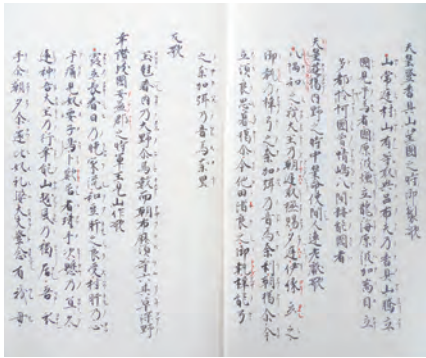 天皇登香具山望國之時御製歌
山常庭村山有等取與呂布天乃香具山騰立
國見乎為者國原波煙立龍海原波加萬目立
多都怜𪫧國曽蜻嶋八間跡能國者
天皇遊獦内野之時中皇命使間人連老獻歌
八隅知之我大王乃朝庭取撫賜夕庭伊縁立之
御執乃梓弓之奈加弭乃音為奈利朝獦尓今
立須良思暮獦尓今他田渚良之御執梓能弓
之奈加弭乃音為奈里
反歌
玉尅春内乃大野尓馬數而朝布麻須等六其草深野
幸讃岐國安益郡之時軍王見山作歌
霞立長春日乃晩家流和豆肝之良受村肝乃心
乎痛見奴要子鳥卜歎居者珠手次懸乃宜久
遠神吾大王乃行幸能山越風乃獨居吾衣
手尓朝夕尓還比奴礼婆大夫登念有我母